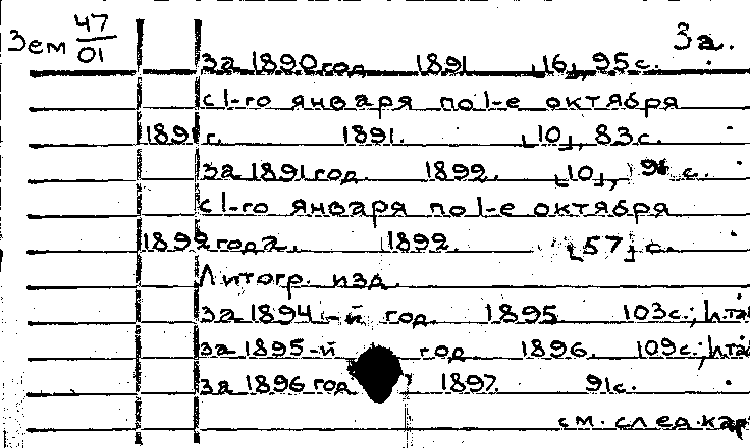 Зем 47/01 3а.
за 1890 год 1891 [16], 95 с.
с 1-го января по 1-е октября
1891 г. 1891. [10], 83 с.
за 1891 год. 1892. [10], с.
с 1-го января по 1-е октября
1892 года. 1892. [57] с.
Литогр. изд.
за 1894-й год. 1895. 103 с.;
за 1895-й год. 1896. 109 с.;
за 1896 год 1897. 91 с.
см. след. кар